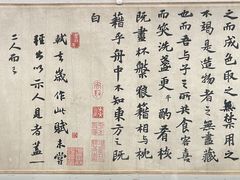 之而成色取之無禁用之
不竭是造物者之無盡藏
也而吾與子之所共食客喜
而笑洗盞更酌肴核
既盡杯盤狼藉相與枕
藉乎舟中不知東方之既
白
軾去歲作此賦未嘗
輕出以示人見者蓋一
二人而已